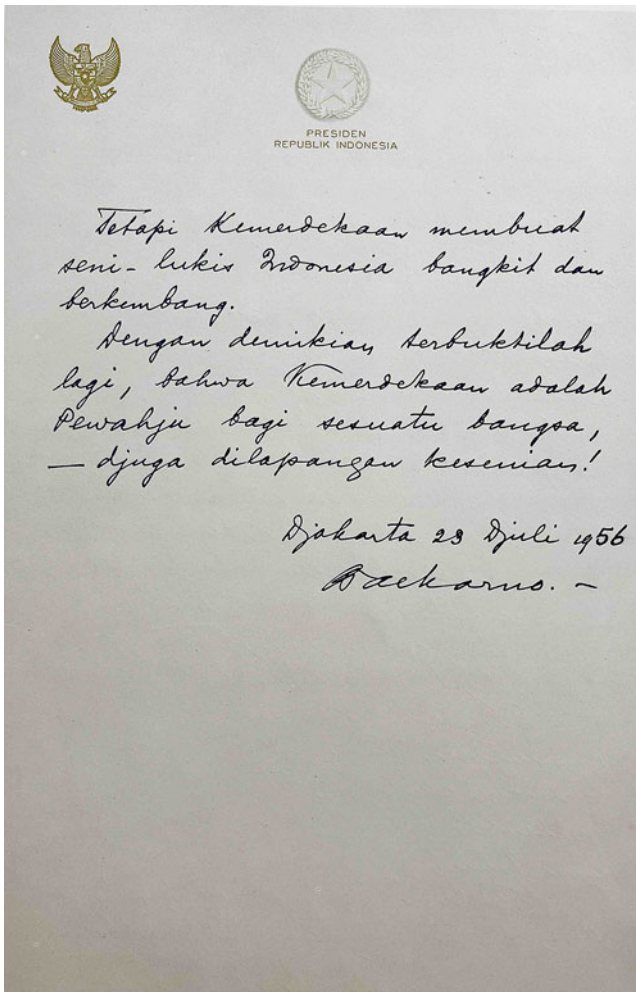 PRESIDEN
REPUBLIK INDONESIA
Tetapi Kemerdekaan membuat
seni-lukis Indonesia bangkit dan
berkembang.
Dengan demikian terbuktilah
lagi, bahwa Kemerdekaan adalah
Pewahju bagi sesuatu bangsa,
— djuga dilapangan kesenian!
Djakarta 23 Djuli 1956
Soekarno. –